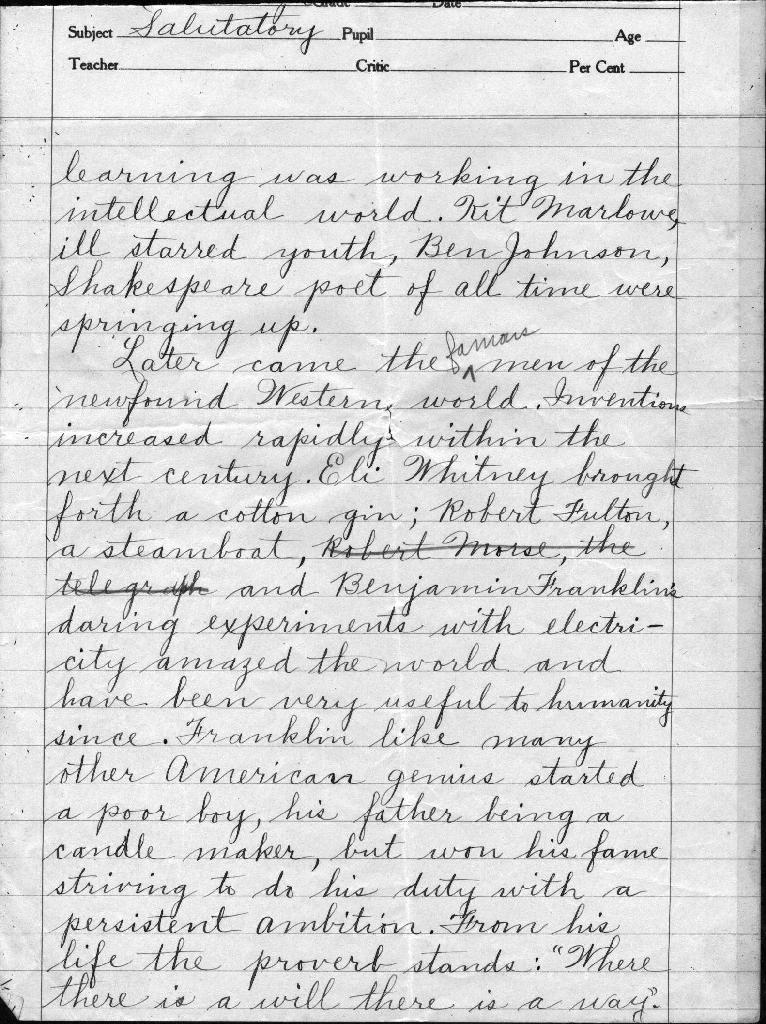 Grade Date
Subject Salutatory Pupil Age
Teacher Critic Per Cent
learning was working in the
intellectual world. Kit Marlowe,
ill starred youth, Ben Johnson,
Shakespeare poet of all time were
springing up.
Later came the famous men of the
newfound Western, world. Inventions
increased rapidly within the
next century. Eli Whitney brought
forth a cotton gin; Robert Fulton,
a steamboat, Robert Morse, the
telegraph and Benjamin Franklin's
daring experiments with electri-
city amazed the world and
have been very useful to humanity
since. Franklin like many
other American genius started
a poor boy, his father being a
candle maker, but won his fame
striving to do his duty with a
persistent ambition. From his
life the proverb stands: "Where
there is a will there is a way".